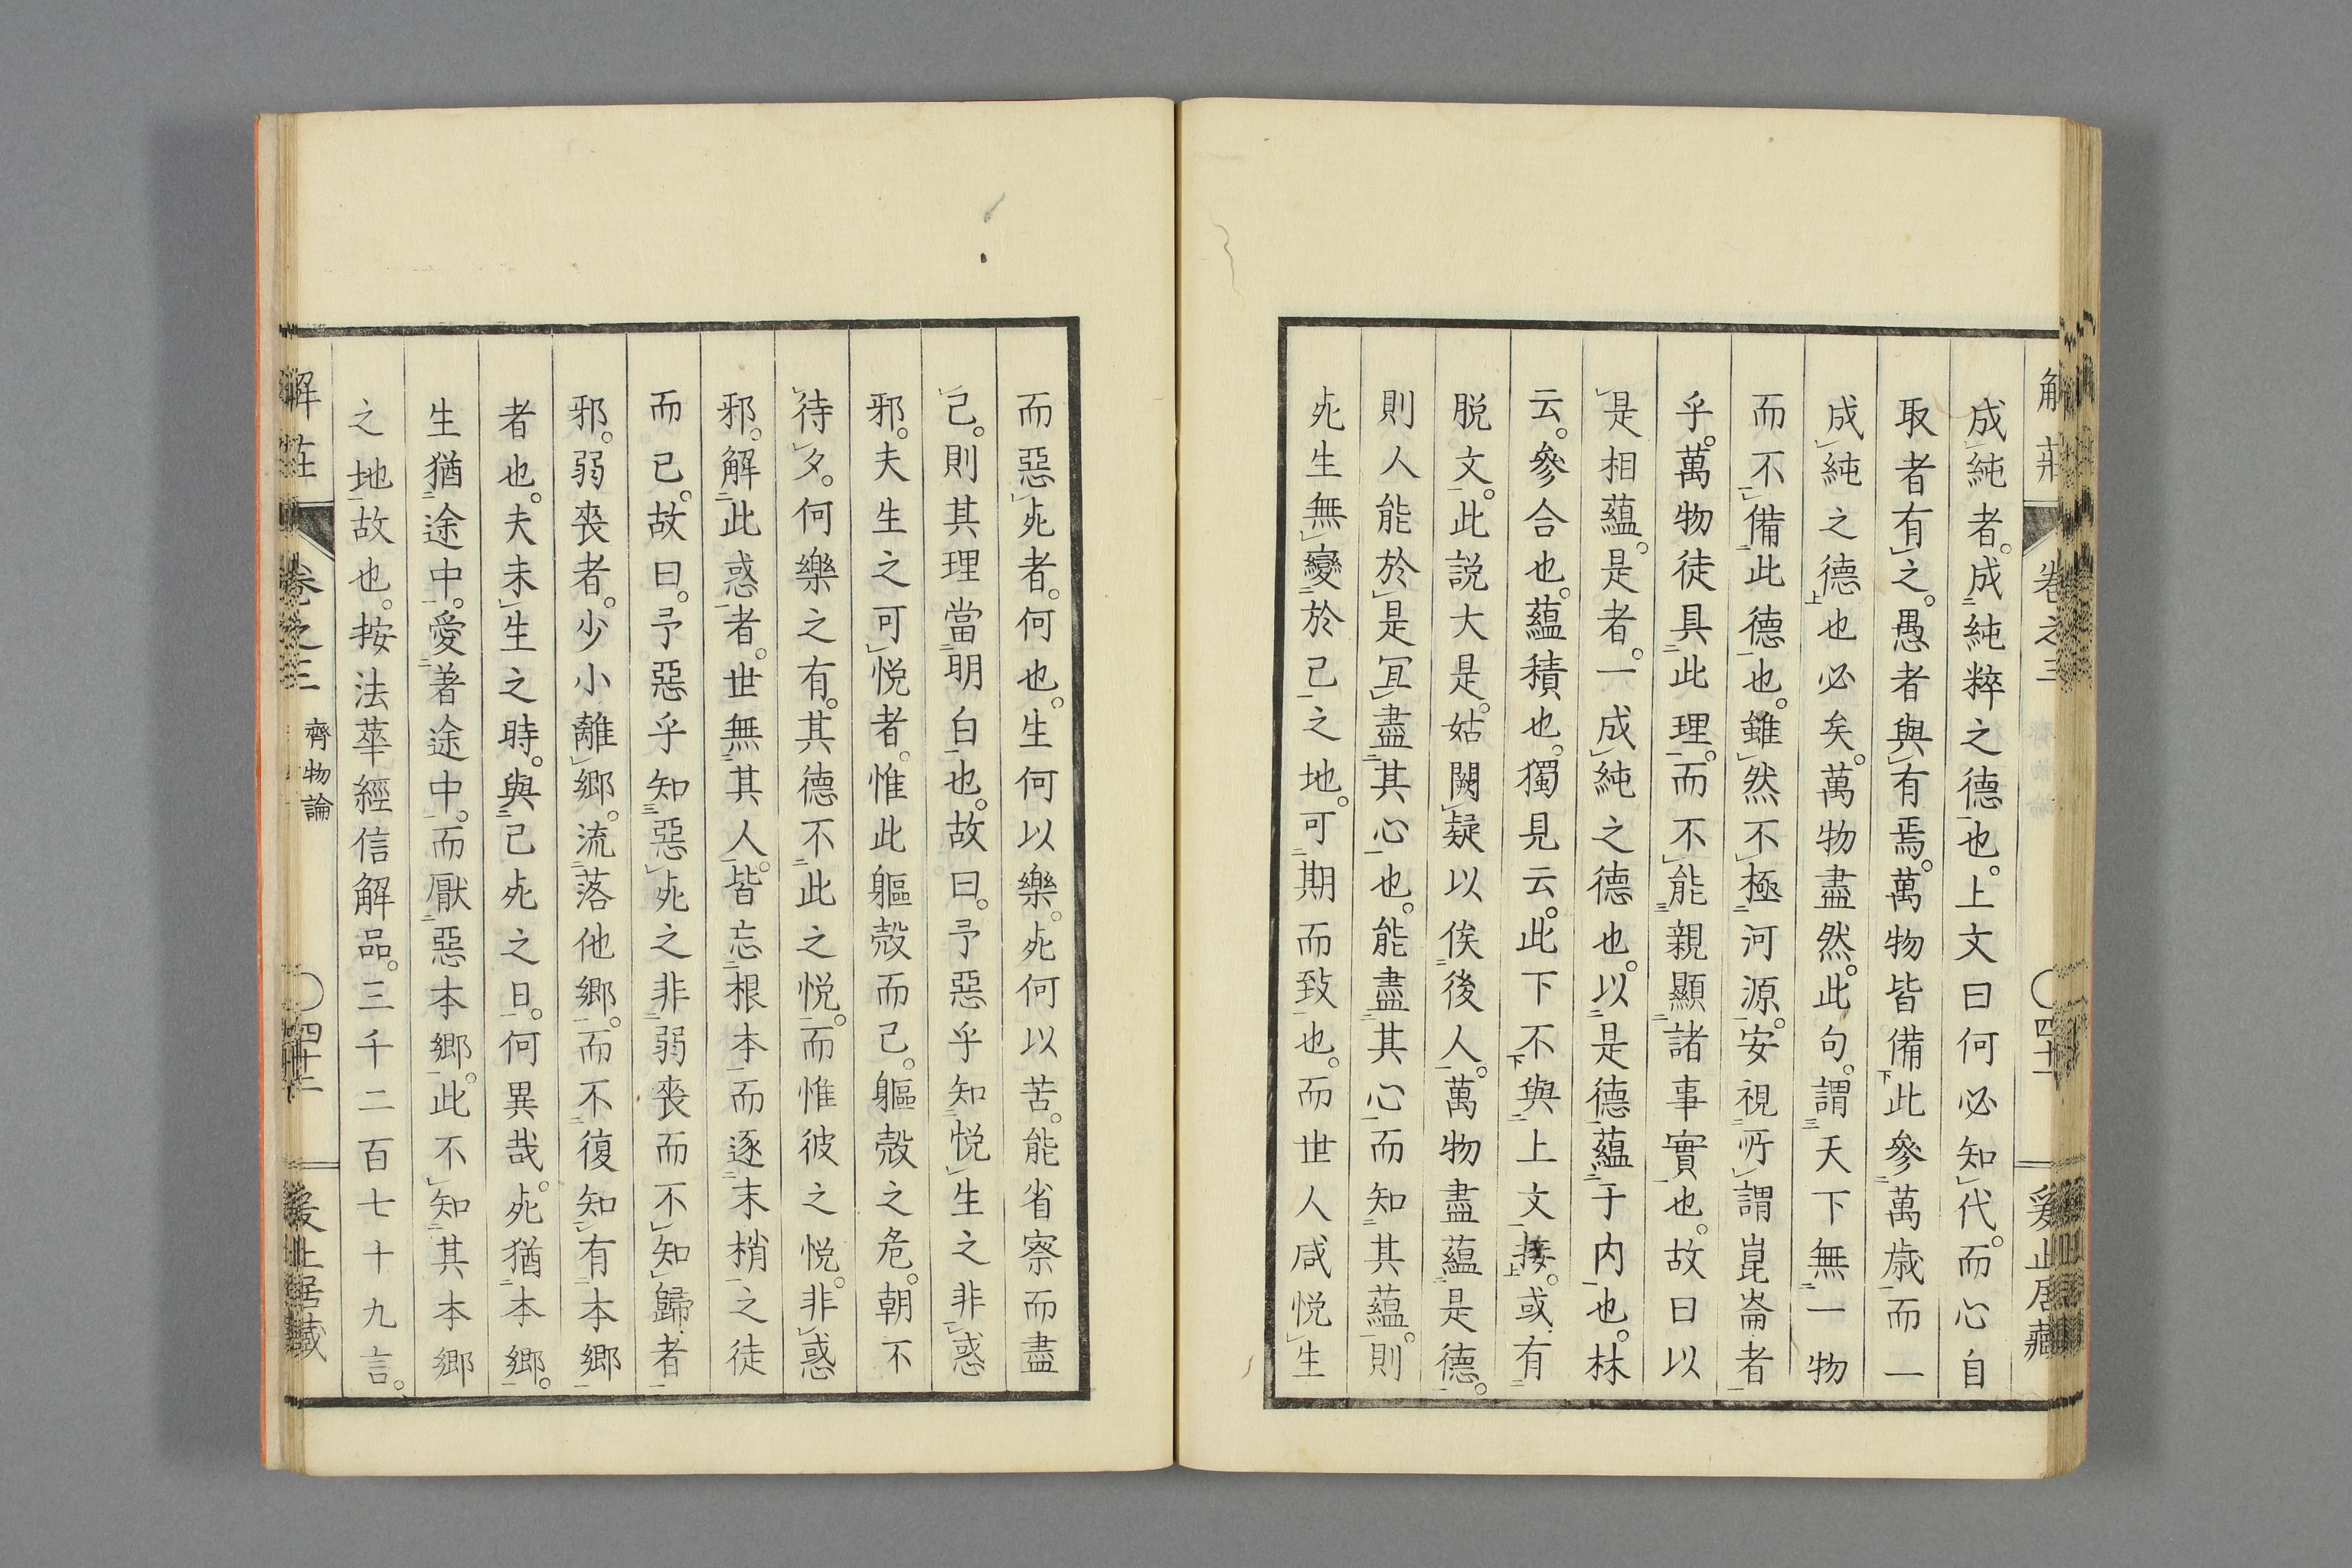 成純者。成純粹之德也。上文曰何必知代。而心自
取者有之。愚者與有焉。萬物皆備此參萬歲而一
成純之德也必矣。萬物盡然。此句。謂天下無一物
而不備此德也。雖然不極河源。安視所謂崑崙者
乎。萬物徒具此理。而不能親顯諸事實也。故曰以
是相蘊。是者。一成純之德也。以是德蘊于内也。林
云。參合也。蘊積也。獨見云。此下不與上文接。或有
脱文。此説大是。姑闕疑以俟後人。萬物盡蘊是德。
則人能於是冝盡其心也。能盡其心而知其蘊。則
死生無變於己之地。可期而致也。而世人咸悦生
而惡死者。何也。生何以樂。死何以苦。能省察而盡
己。則其理當明白也。故曰。予惡乎知悦生之非惑
邪。夫生之可悦者。惟此軀殼而已。軀殼之危。朝不
待夕。何樂之有。其德不此之悦。而惟彼之悦。非惑
邪。解此惑者。世無其人。皆忘根本而逐末梢之徒
而已。故曰。予惡乎知惡死之非弱喪而不知歸者
邪。弱喪者。少小離鄉。流落他鄉。而不復知有本鄉
者也。夫未生之時。與己死之日。何異哉。死猶本鄉。
生猶途中。愛著途中。而厭惡本鄉。此不知其本鄉
之地故也。按法華經信解品。三千二百七十九言。
解莊 卷之三 齊物論